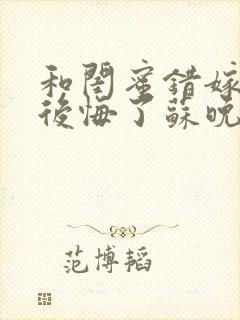 和閏蜜錯嫁
後悔了蘇晚
范博韬